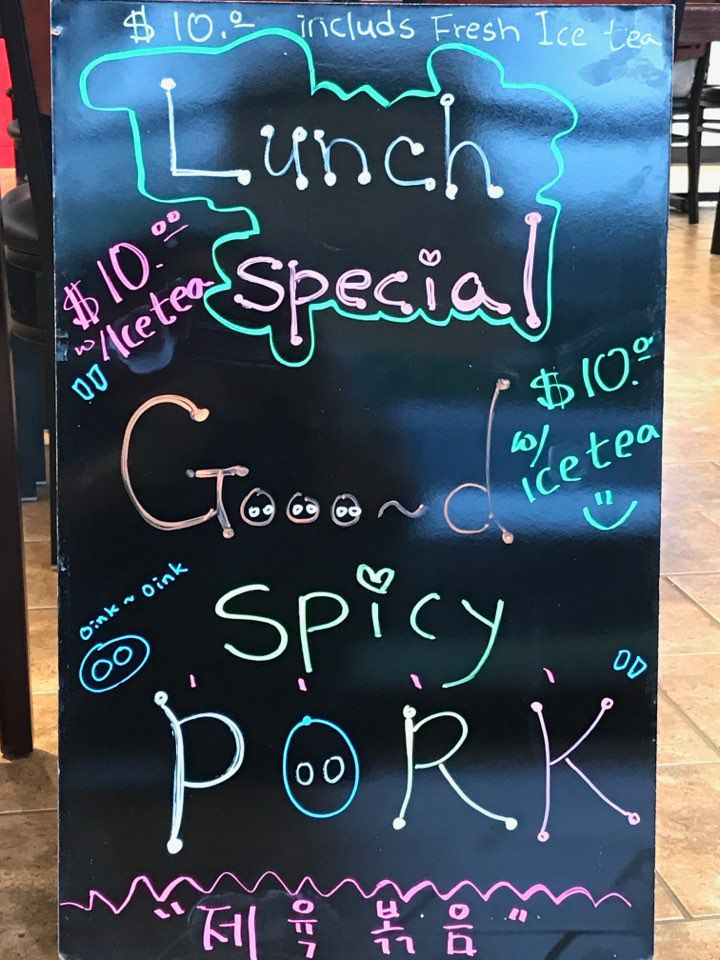 $10.00 includs Fresh Ice tea
Lunch
Special
$10.00
w/Icetea
Gooo~d
$10.00
w/
Icetea
Spicy
oink~oink
PORK
"제육볶음"